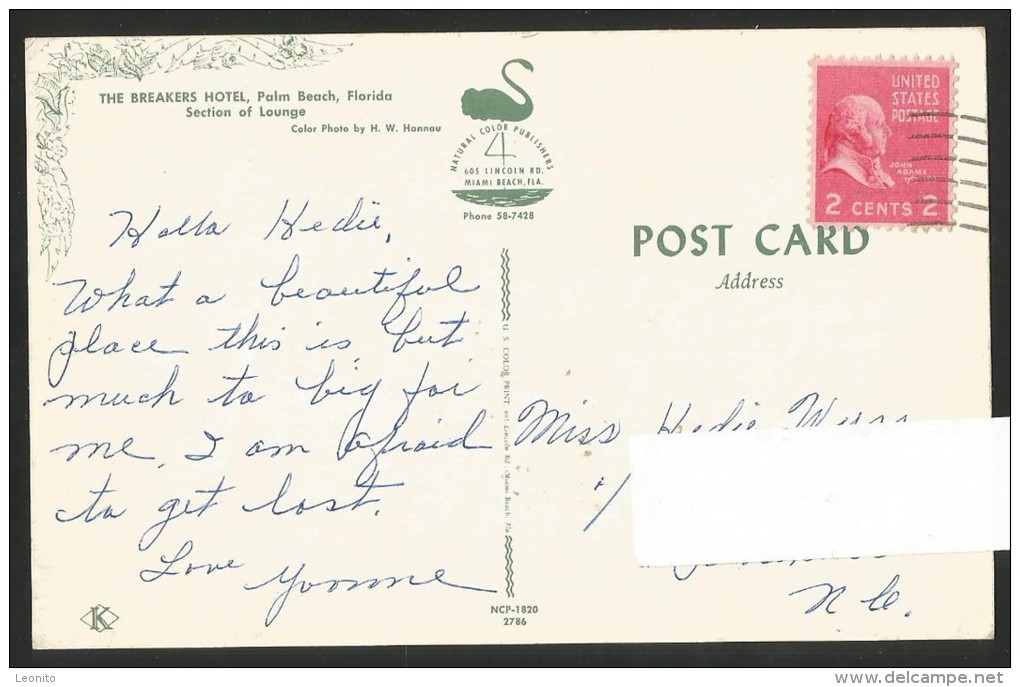 THE BREAKERS HOTEL, Palm Beach, Florida
Section of Lounge
Color Photo by H. W. Hannau
NATURAL COLOR PUBLISHERS
4
605 LINCOLN RD.
MIAMI BEACH, FLA.
Phone 58-7428
UNITED
STATES
POSTAGE
JOHN
ADAMS
2 CENTS 2
POST CARD
Address
Hallo Hedie,
What a beautiful
place this is but
much to big for
me, I am afraid
to get lost.
Love Yvonne
U. S. COLOR PRINT, 605 Lincoln Rd., Miami Beach, Fla.
Miss Hedie
N.C.
K
NCP-1820
2786
Leonito
www.delcampe.net